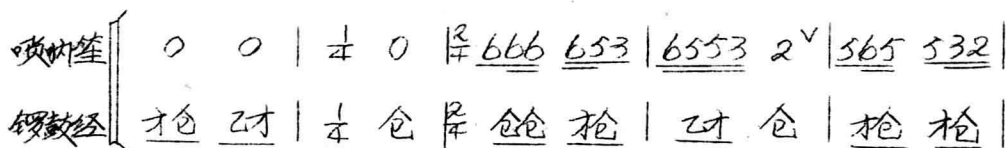 唢呐笙 0 0 | 1/4 0 | 2/4 666 653 | 6553 2 ∨ | 565 532 |
锣鼓经 才仓 乙才 | 1/4 仓 | 2/4 仓仓 才仓 | 乙才 仓 | 才仓 才仓 |